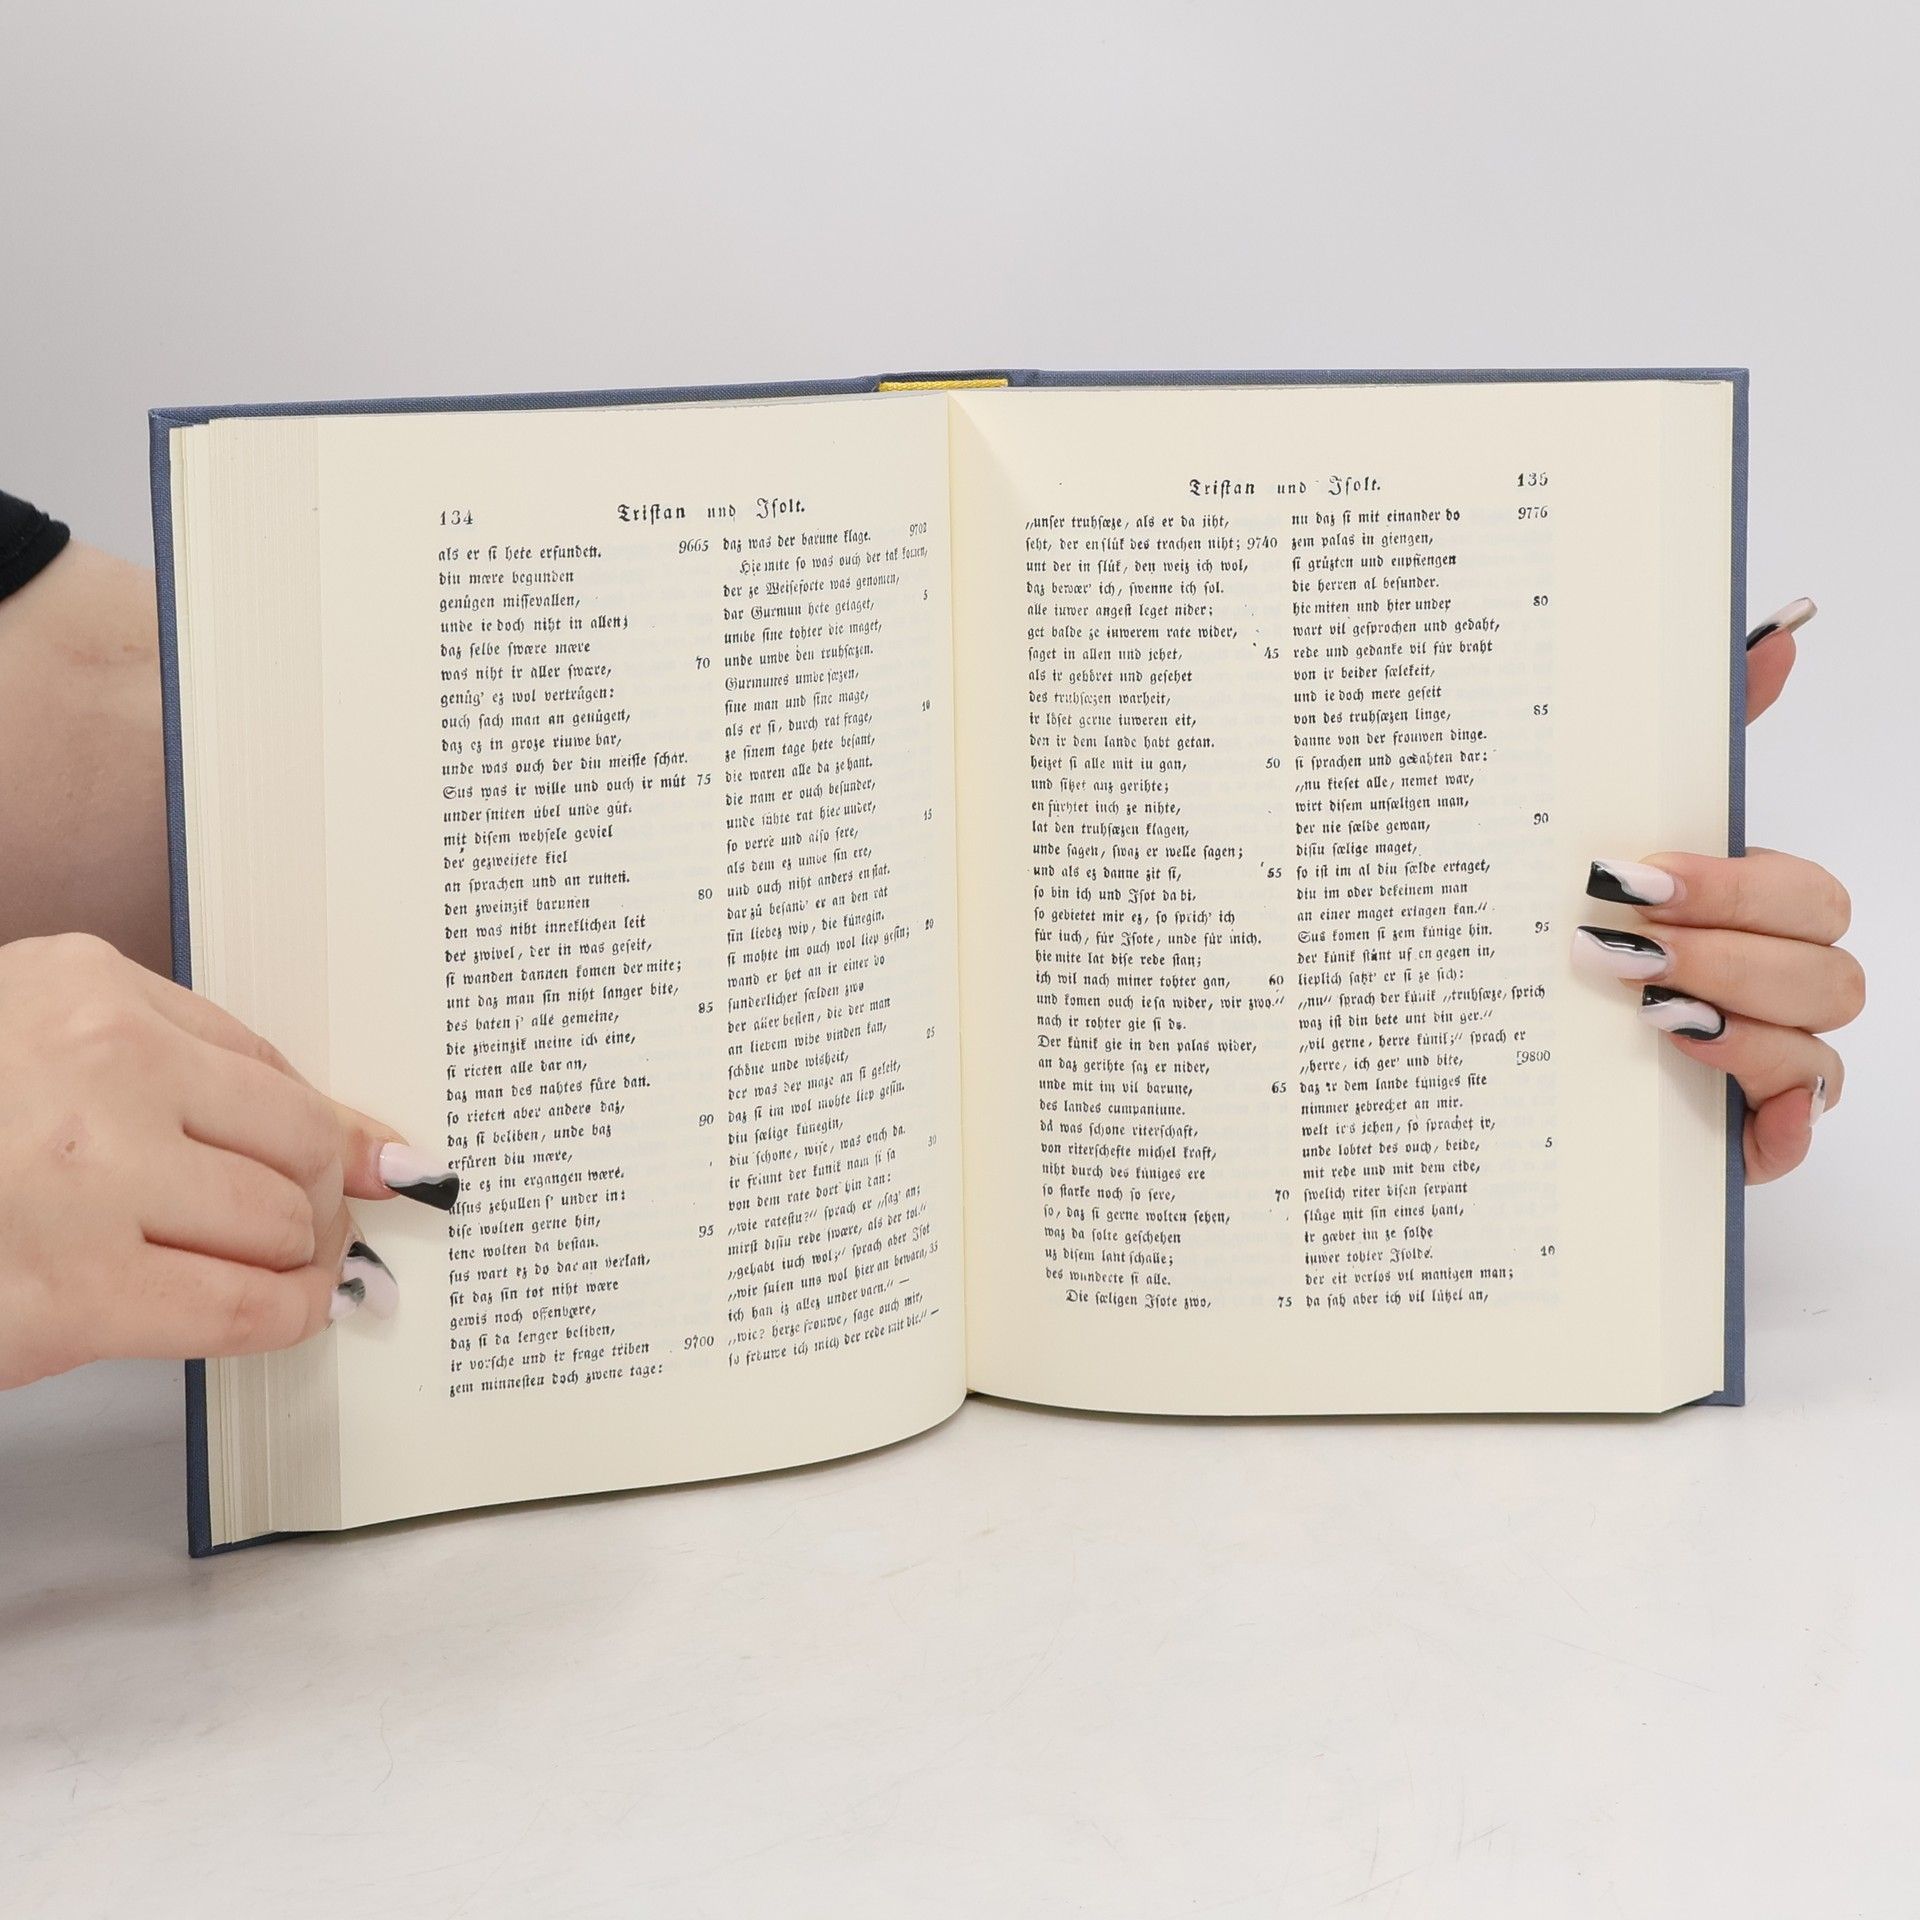 134
Tristan und Isolt.
als er si hete erfunden. 9665
diu mære begunden
genůgen missevallen,
unde ie doch niht in allen;
daz selbe swære mære
was niht ir aller swære, 70
genůg' ez wol vertrůgen:
ouch sach man an genůgen,
daz ez in groze riuwe bar,
unde was ouch der diu meiste schar.
Sus was ir wille und ouch ir můt 75
under sniten übel unde gůt.
mit disem wehsele geviel
der gezweijete kiel
an sprachen und an runen.
den zweinzik barunen 80
den was niht inneklichen leit
der zwivel, der in was geseit,
si wanden dannen komen der mite;
unt daz man sin niht langer bite,
des baten s' alle gemeine, 85
die zweinzik meine ich eine,
si rieten alle dar an,
daz man des nahtes füre dan.
so rieten aber andere daz,
daz si beliben, unde baz 90
erfüren diu mære,
wie ez im ergangen wære.
alsus zehullen s' under in:
dise wolten gerne hin,
iene wolten da bestan. 95
sus wart ez do dar an verlan,
sit daz sin tot niht wære
gewis noch offenbære,
daz si da lenger beliben,
ir vorsche und ir frage triben 9700
zem minnesten doch zwene tage:
daz was der barune klage. 9702
Hie mite so was ouch der tak komen,
der ze Weiseforte was genomen,
dar Gurmun hete gelaget, 5
umbe sine tohter die maget,
unde umbe den truhsæzen.
Gurmunes umbe sæzen,
sine man und sine mage,
als er si, durch rat frage, 10
ze sinem tage hete besant,
die waren alle da ze hant.
die nam er ouch besunder,
unde sůhte rat hier under,
so verre und also sere, 15
als dem ez umbe sin ere,
und ouch niht anders en stat.
dar zů besand' er an den rat
sin liebez wip, die künegin.
si mohte im ouch wol liep gesin; 20
wand er het an ir einer do
sunderlicher sælden zwo
der aller besten, die der man
an liebem wibe vinden kan,
schöne unde wisheit, 25
der was der maze an si geleit,
daz si im wol mohte liep gesin.
diu sælige künegin,
diu schone, wise, was ouch da.
ir friunt der künik nam si sa 30
von dem rate dort hin dan:
„wie ratestu?“ sprach er „sag' an;
mirst disiu rede swære, als der tot.“
„gehabt iuch wol;“ sprach aber Isot
„wir sulen uns wol hier an bewarn, 35
ich han iz allez under varn.“ —
„wie? herze frouwe, sage ouch mir,
so freuwe ich mich der rede mit dir.“ —
Tristan und Isolt.
135
„unser truhsæze, als er da jiht,
seht, der en slůk des trachen niht; 9740
unt der in slůk, den weiz ich wol,
daz bewær' ich, swenne ich sol.
alle iuwer angest leget nider;
get balde ze iuwerem rate wider,
saget in allen und jehet, 45
als ir gehöret und gesehet
des truhsæzen warheit,
ir löset gerne iuweren eit,
den ir dem lande habt getan.
heizet si alle mit iu gan, 50
und sitzet anz gerihte;
en fürhtet iuch ze nihte,
lat den truhsæzen klagen,
unde sagen, swaz er welle sagen;
und als ez danne zit si, 55
so bin ich und Isot da bi,
so gebietet mir ez, so sprich' ich
für iuch, für Isote, unde für mich.
hie mite lat dise rede stan;
ich wil nach miner tohter gan, 60
und komen ouch iesa wider, wir zwo.“
nach ir tohter gie si do.
Der künik gie in den palas wider,
an daz gerihte saz er nider,
unde mit im vil barune, 65
des landes cumpaniune.
da was schone riterschaft,
von riterschefte michel kraft,
niht durch des küniges ere
so starke noch so sere, 70
so, daz si gerne wolten sehen,
waz da solte geschehen
uz disem lant schalle;
des wunderte si alle.
Die sæligen Isote zwo, 75
nu daz si mit einander do 9776
zem palas in giengen,
si grůzten und enpfiengen
die herren al besunder.
hie miten und hier under 80
wart vil gesprochen und gedaht,
rede und gedanke vil für braht
von ir beider sælekeit,
und ie doch mere geseit
von des truhsæzen linge, 85
danne von der frouwen dinge.
si sprachen und gedahten dar:
„nu kieset alle, nemet war,
wirt disem unsæligen man,
der nie sælde gewan, 90
disiu sælige maget,
so ist im al diu sælde ertaget,
diu im oder dekeinem man
an einer maget ertagen kan.“
Sus komen si zem künige hin. 95
der künik stůnt uf en gegen in,
lieplich satzt' er si ze sich:
„nu“ sprach der künik „truhsæze, sprich
waz ist din bete unt din ger.“
„vil gerne, herre künik;“ sprach er
„herre, ich ger' und bite, [9800
daz ir dem lande küniges site
nimmer zebrechet an mir.
welt irs jehen, so sprachet ir,
unde lobtet des ouch, beide, 5
mit rede und mit dem eide,
swelich riter disen serpant
slůge mit sin eines hant,
ir gæbet im ze solde
iuwer tohter Isolde. 10
der eit verlos vil manigen man;
da sah aber ich vil lützel an,